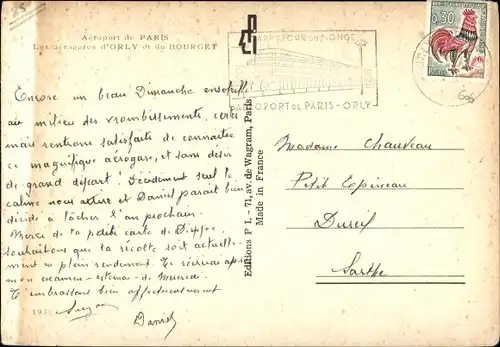 Aéroport de PARIS
Les aérogares d'ORLY et du BOURGET
CARREFOUR DU MONDE
AEROPORT DE PARIS - ORLY
0,30
Encore un beau Dimanche ensoleillé
au milieu des vrombissements, certes
mais rentrons satisfaits de connaitre
ce magnifique aérogare, et sans désir
de grand départ ! Décidément seul le
calme nous attire et Daniel parait bien
décidé à lâcher l'an prochain.
Merci de ta petite carte de Dieppe,
souhaitons que ta récolte soit actuelle-
ment en plein rendement. Te récrirai après
mon examen estomac de Mercredi.
T'embrassons bien affectueusement
Suzon
Daniel
Editions P I. - 71, av. de Wagram, Paris
Made in France
Madame Chauveau
Petit Epineau
Dureil
Sarthe